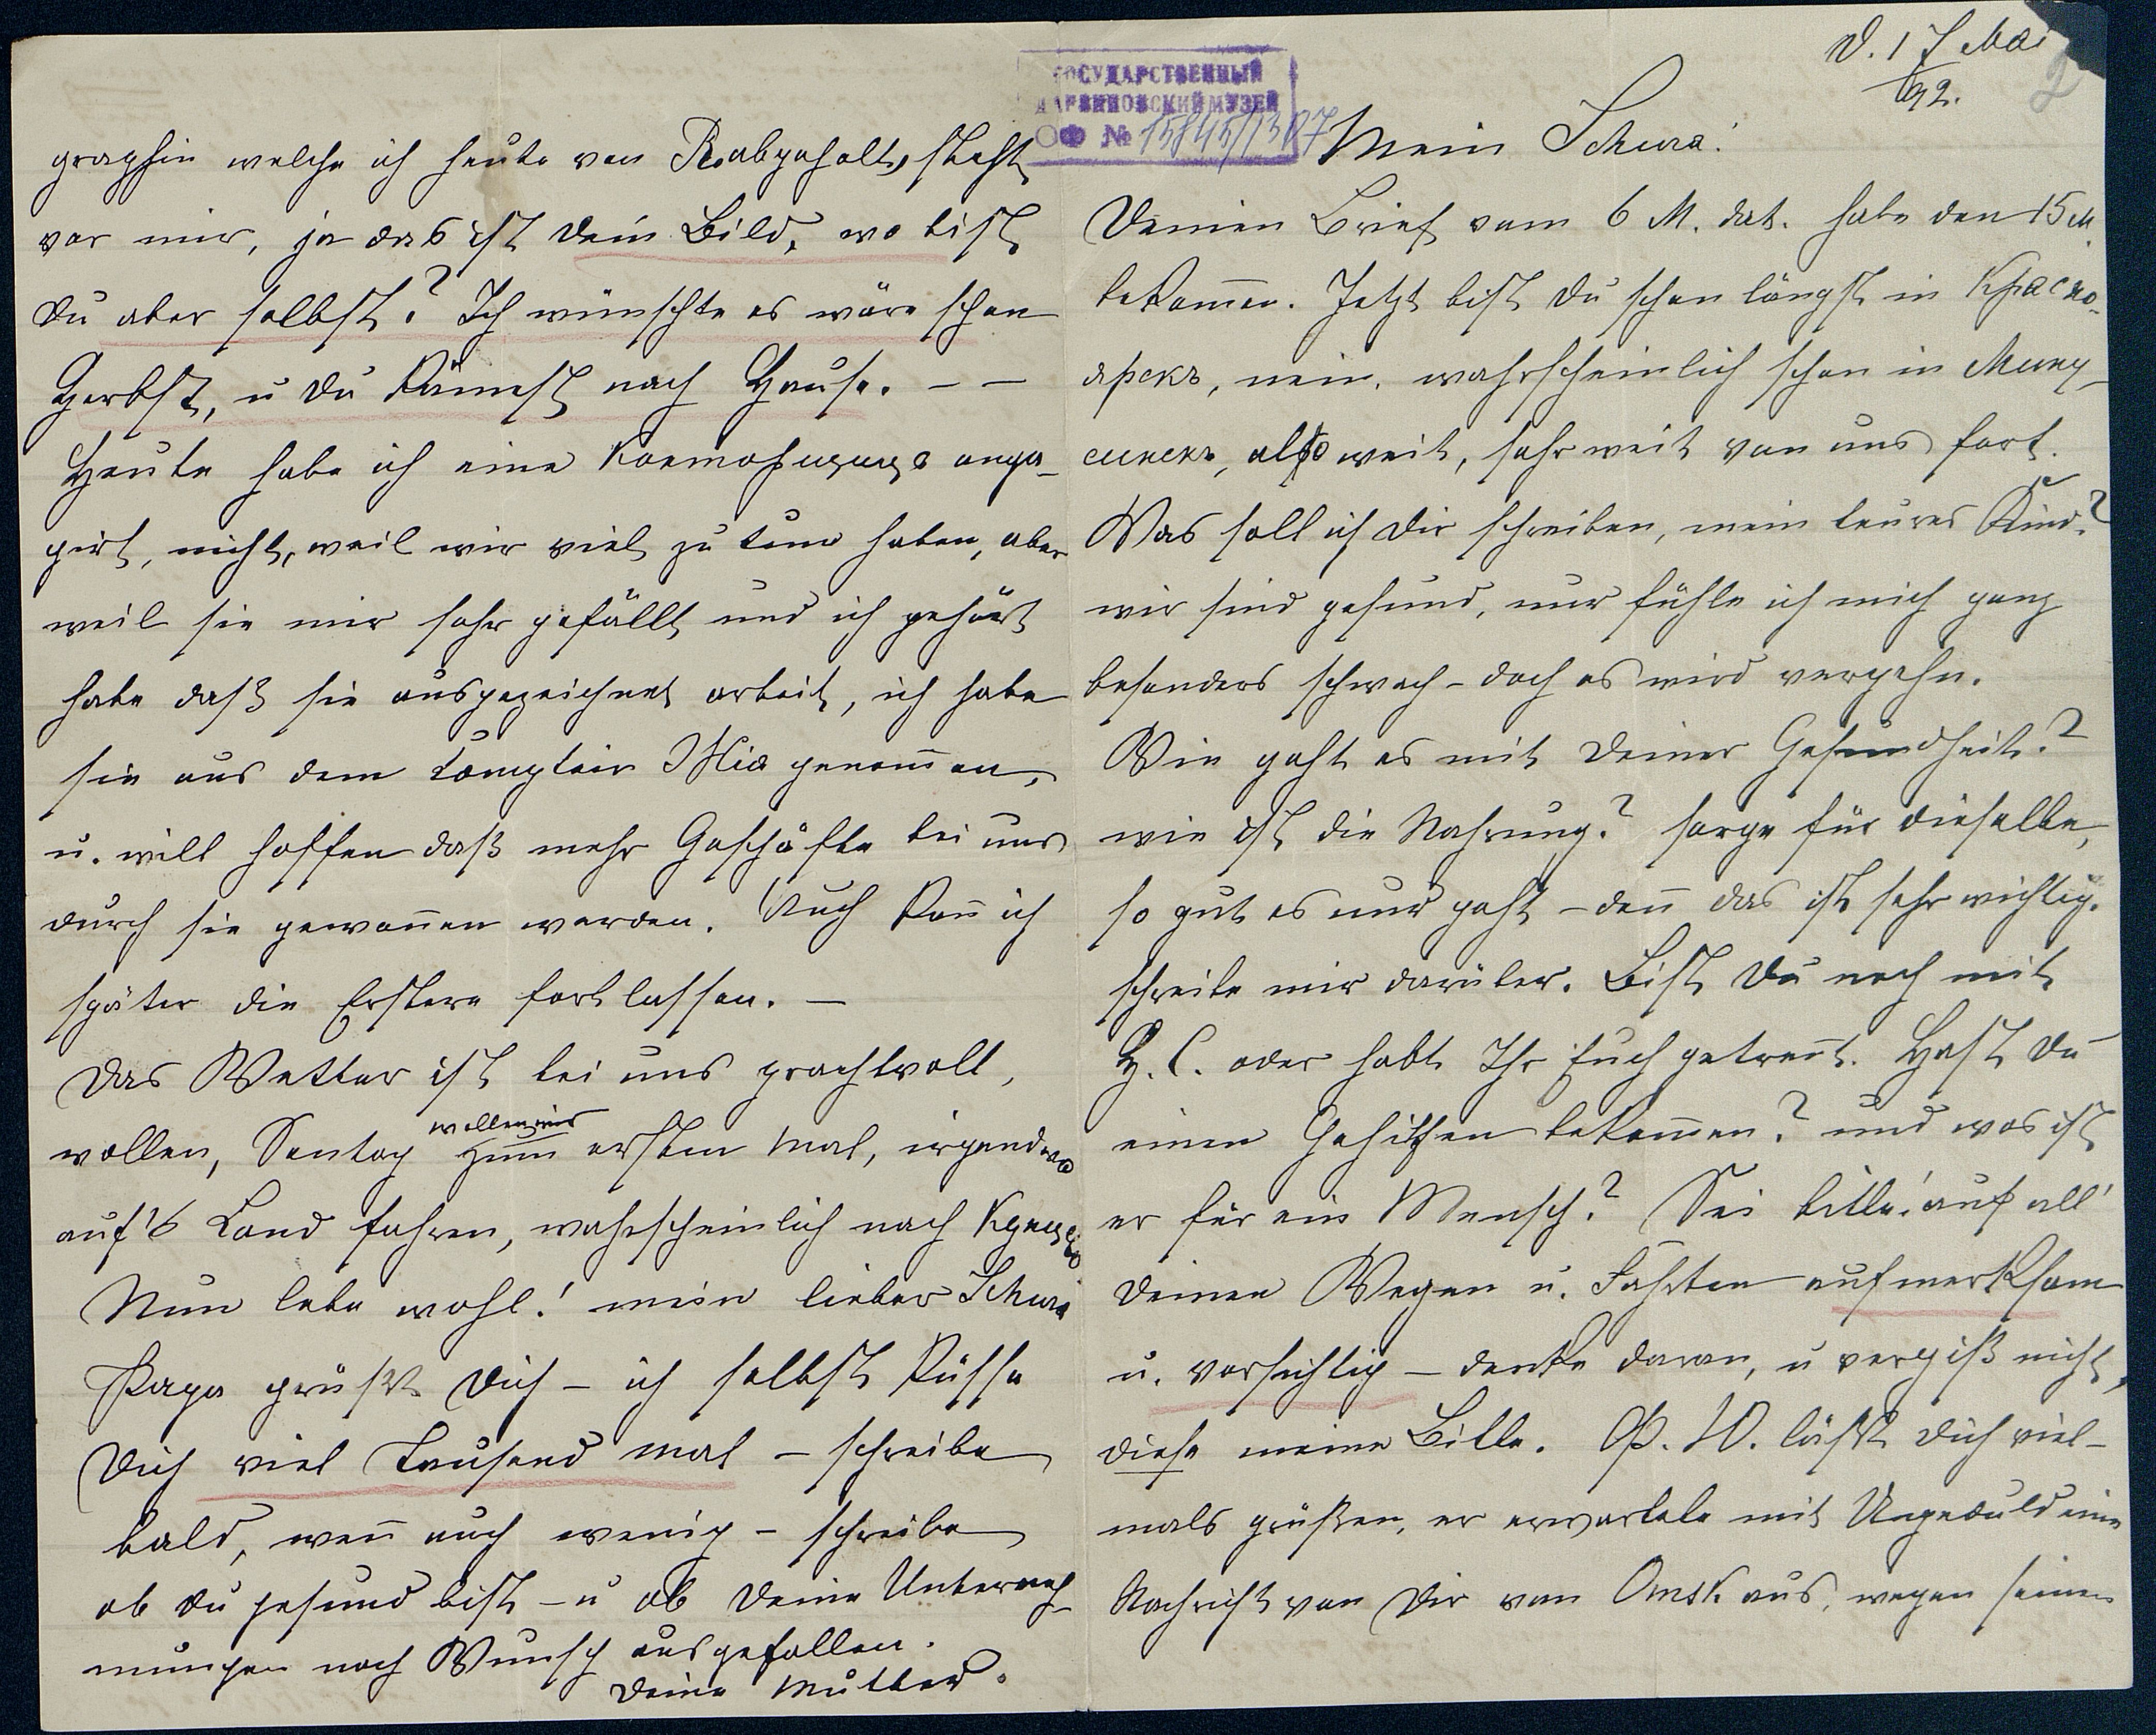 D. 17 Mai
92.
Mein Schura!
Deinen Brief vom 6 M. dat. habe den 15 M.
bekom̄en. Jetzt bist Du schon längst in Красно-
ярскъ, nein, wahrscheinlich schon in Мину-
синскъ, also weit, sehr weit von uns fort.
Was soll ich Dir schreiben, mein teures Kind?
wir sind gesund, nur fühle ich mich ganz
besonders schwach – doch es wird vergehn.
Wie geht es mit Deiner Gesundheit?
wie ist die Nahrung? sorge für dieselbe,
so gut es nur geht – den̄ das ist sehr wichtig.
schreibe mir darüber. Bist Du noch mit
G. C. oder habt Ihr Euch getren̄t. Hast Du
einen Gehilfen bekom̄en? und was ist
er für ein Mensch? Sei bitte! auf all'
Deinen Wegen u. Fahrten aufmerksam
u. vorsichtig – denke daran, u vergiß nicht,
diese meine Bitte. Ѳ. W. läßt Dich viel-
mals grüßen, er erwartete mit Ungeduld eine
Nachricht von Dir von Omsk aus, wegen seiner
ГОСУДАРСТВЕННЫЙ
ДАРВИНОВСКИЙ МУЗЕЙ
ОФ № 15845/1307
graphie welche ich heute von R. abgeholt, steht
vor mir, ja das ist Dein Bild, wo bist
Du aber selbst? Ich wünschte es wäre schon
Herbst, u Du kämest nach Hause. – –
Heute habe ich eine конторщица enga-
girt, nicht, weil wir viel zu tun haben, aber
weil sie mir sehr gefällt und ich gehört
habe daß sie ausgezeichnet arbeit, ich habe
sie aus dem Comptoir genom̄en,
u. will hoffen daß mehr Geschäfte bei uns
durch sie gewon̄en werden. Auch kan̄ ich
später die Erstere fortlassen. –
Das Wetter ist bei uns prachtvoll,
wollen, Sontag wollen wir zum ersten Mal, irgendwo
auf's Land fahren, wahrscheinlich nach
Nun lebe wohl! mein lieber Schura
Papa grüßt Dich – ich selbst küsse
Dich viel Tausend mal – schreibe
bald, wen̄ auch wenig – schreibe
ob Du gesund bist – u ob Deine Unterneh-
mungen nach Wunsch ausgefallen.
Deine Mutter.